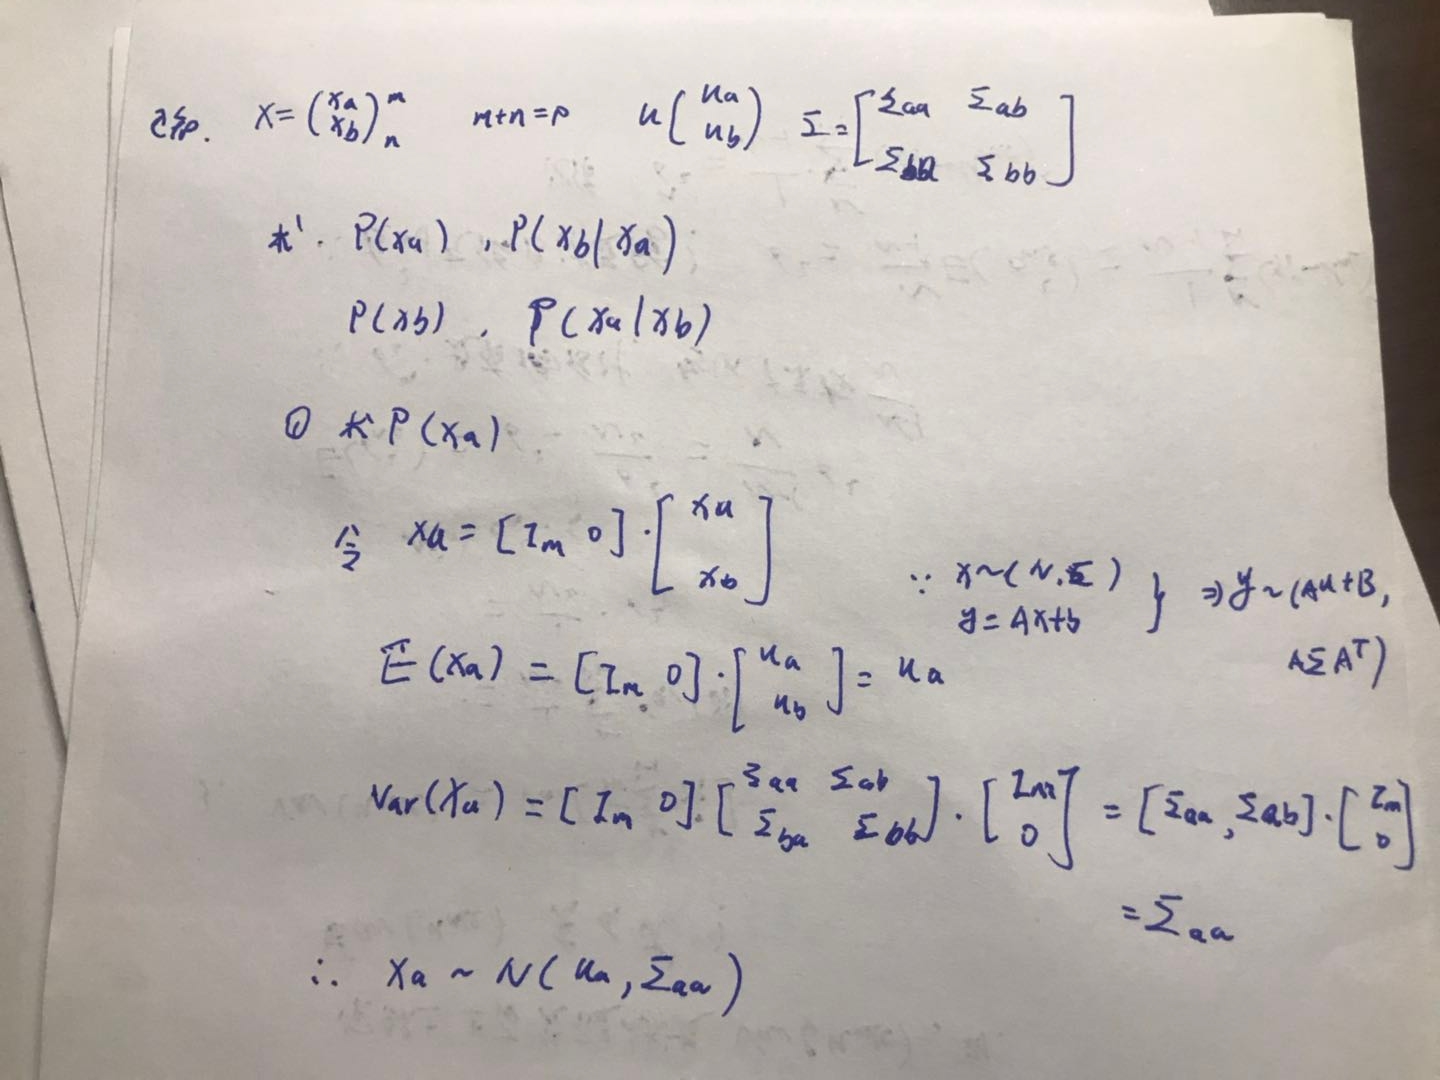 已知. X = (xa xb) m n  m+n=p  u (ua ub)  Σ = [Σaa Σab Σba Σbb]
求. P(xa), P(xb|xa)
P(xb), P(xa|xb)
① 求 P(xa)
令 xa = [Im 0] · [xa xb]
∵ x~(N.Σ) y=Ax+b } ⇒ y ~ (Au+B, AΣA^T)
E(xa) = [Im 0] · [ua ub] = ua
Var(xa) = [Im 0] · [Σaa Σab Σba Σbb] · [Im 0] = [Σaa, Σab] · [Im 0]
= Σaa
∴ xa ~ N(ua, Σaa)